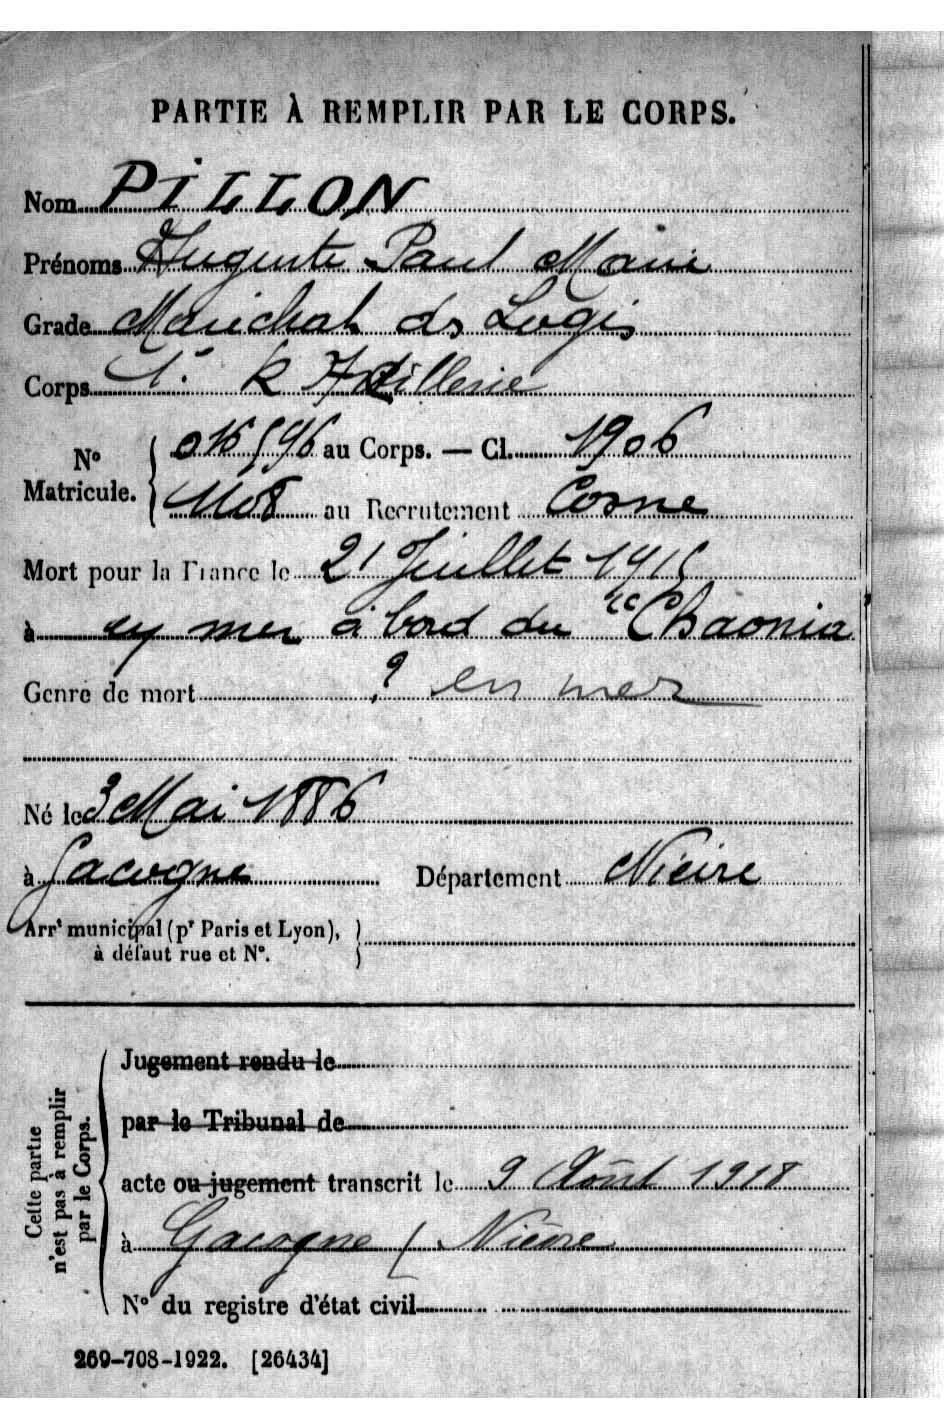 PARTIE À REMPLIR PAR LE CORPS.
Nom PILLON
Prénoms Auguste Paul Marie
Grade Maréchal ds Logis
Corps 1r R Artillerie
No Matricule. 016596 au Corps. — Cl. 1906
1108 au Recrutement Cosne
Mort pour la France le 21 Juillet 1915
à en mer à bord du "Chaonia
Genre de mort ? en mer
Né le 3 Mai 1886
à Gacogne Département Nièvre
Arrt municipal (pr Paris et Lyon),
à défaut rue et No.
Cette partie n'est pas à remplir par le Corps.
Jugement rendu le
par le Tribunal de
acte ou jugement transcrit le 9 Août 1918
à Gacogne / Nièvre
No du registre d'état civil
269-708-1922. [26434]